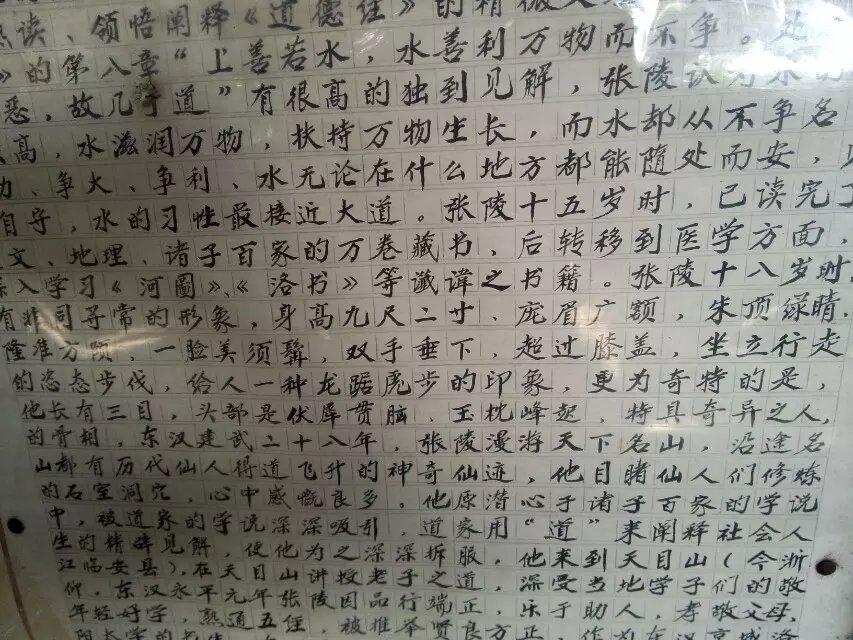 读、领悟阐释《道德经》的精微
》的第八章“上善若水，水善利万物而不争。处
恶，故几于道”有很高的独到见解，张陵认为水的
高，水滋润万物，扶持万物生长，而水却从不争名
、争大、争利、水无论在什么地方都能随处而安，
自守，水的习性最接近大道。张陵十五岁时，已读完了
文、地理、诸子百家的万卷藏书，后转移到医学方面，
入学习《河圖》、《洛书》等谶讳之书籍。张陵十八岁时，
有非同寻常的形象，身高九尺二寸、庞眉广额，朱顶绿睛，
隆准方颐，一脸美须髯，双手垂下，超过膝盖，坐立行走
的姿态步伐，给人一种龙踞虎步的印象，更为奇特的是，
他长有三目，头部是伏犀贯脑、玉枕峰起，特具奇异之人，
的骨相，东汉建武二十八年，张陵漫游天下名山，沿途名
山都有历代仙人得道飞升的神奇仙迹，他目睹仙人们修炼
的石室洞穴，心中感慨良多。他原潜心于诸子百家的学说
中，被道家的学说深深吸引，道家用“道”来阐释社会人
生的精辟见解，使他为之深深拆服，他来到天目山（今浙
江临安县），在天目山讲授老子之道，深受当地学子们的敬
仰，东汉永平元年张陵因品行端正，乐于助人，孝敬父母，
年轻好学，熟通五经，被推举贤良方正，作为